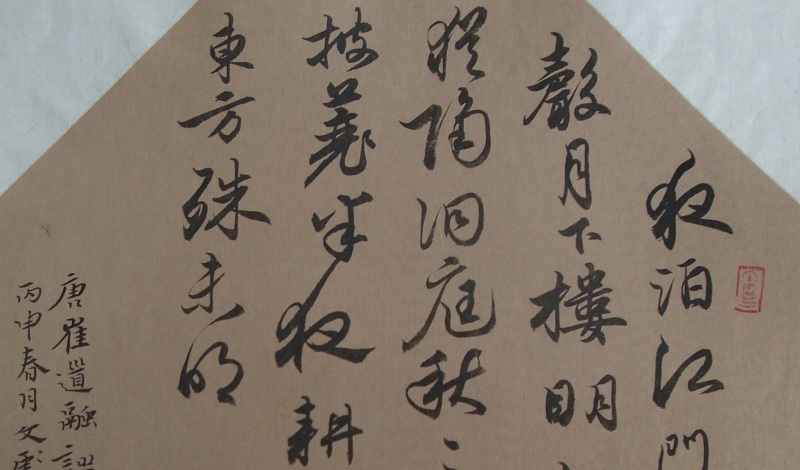 夜泊江門
聲月下樓明
猶隔洞庭秋
披蓑半夜耕
東方殊未明
唐崔道融
丙申春月文